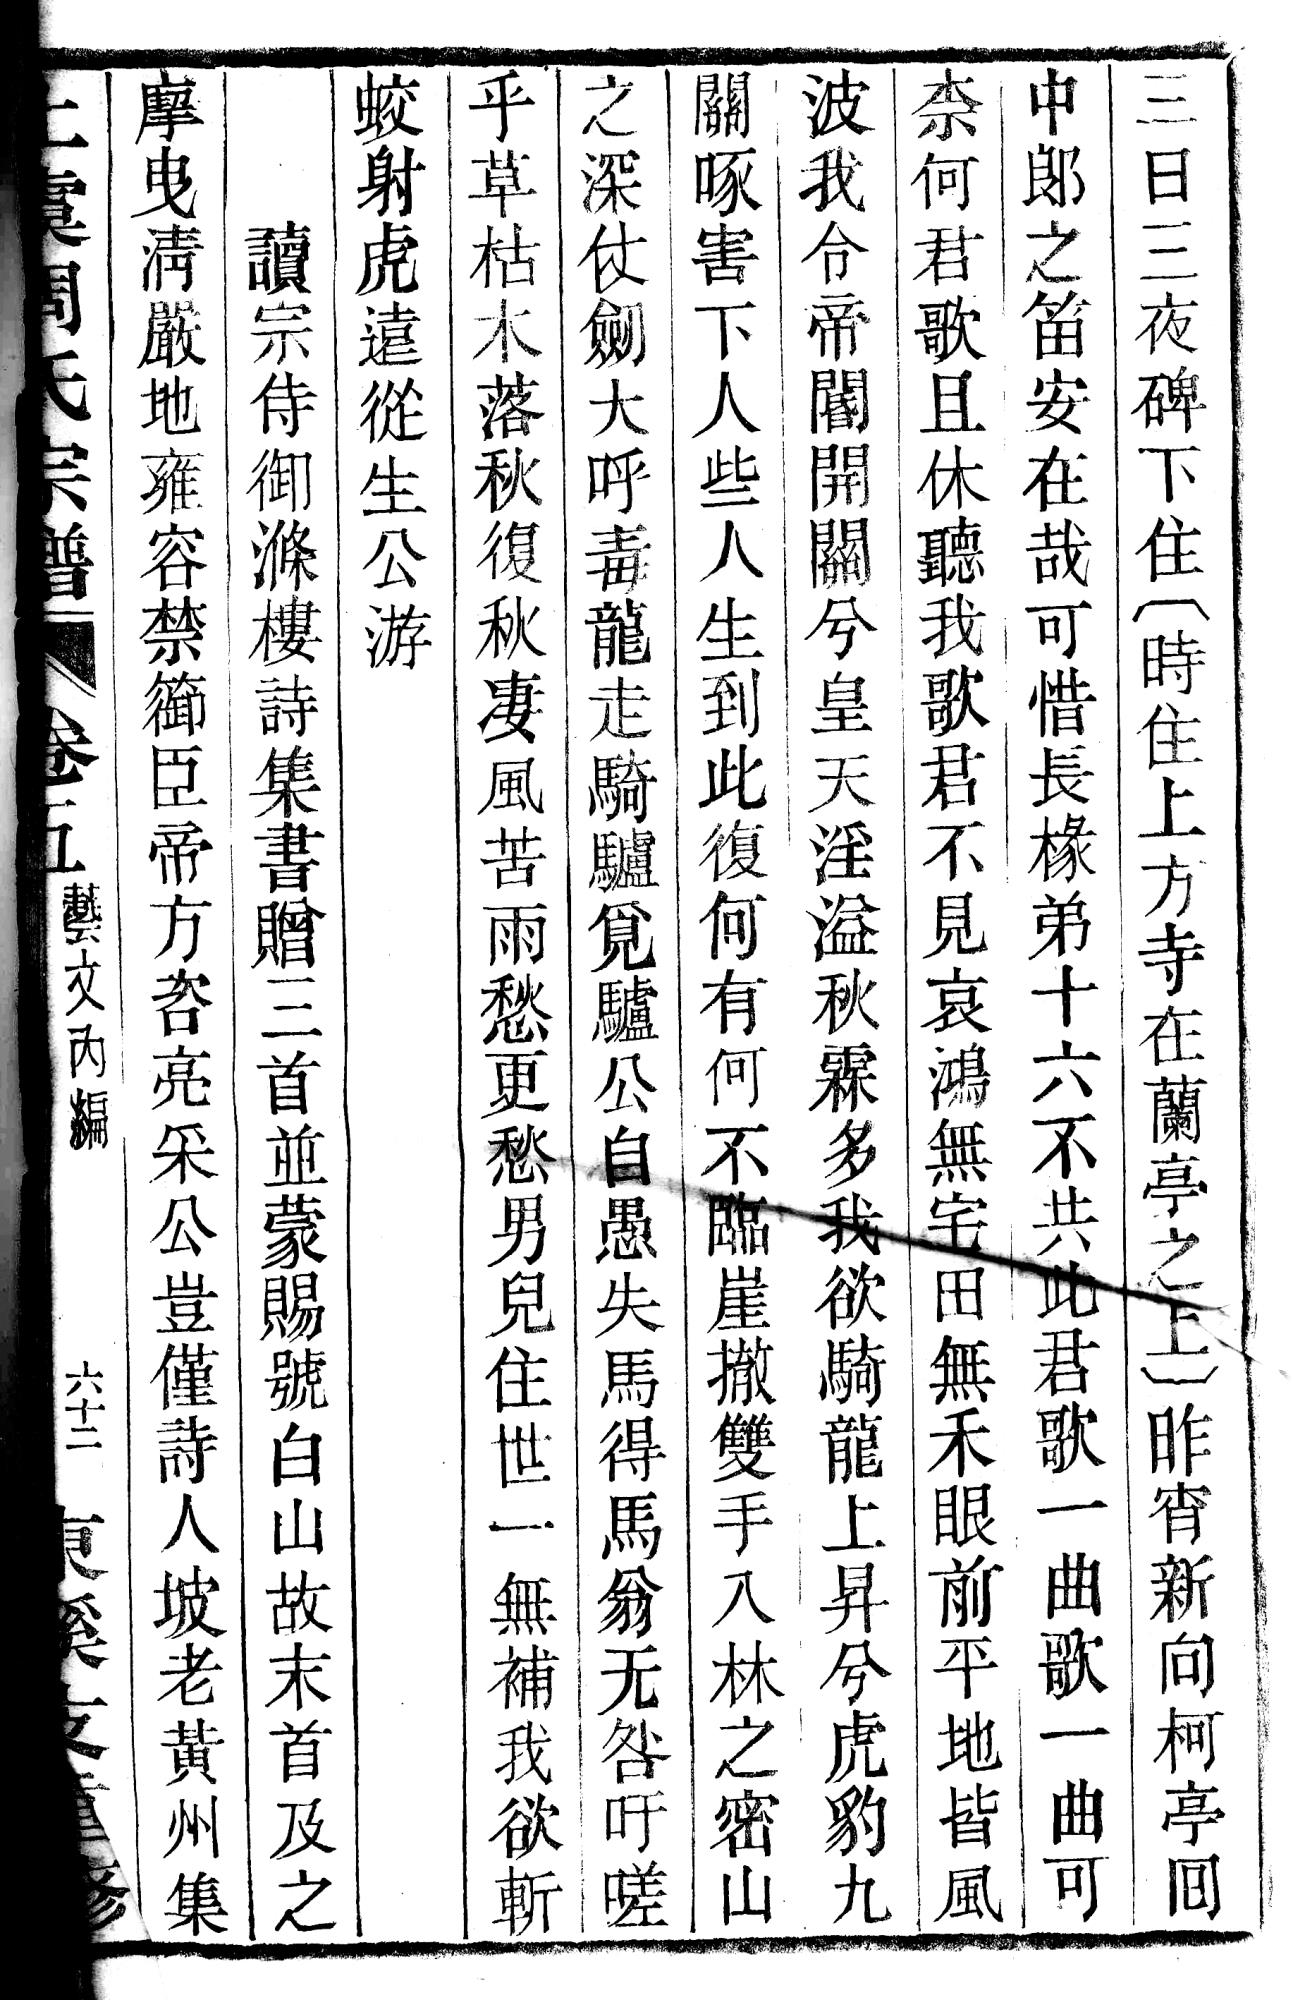 三日三夜碑下住〔時住上方寺在蘭亭之上〕昨宵新向柯亭回
中郎之笛安在哉可惜長椽弟十六不共此君歌一曲歌一曲可
柰何君歌且休聽我歌君不見哀鴻無宅田無禾眼前平地皆風
波我令帝閽開關兮皇天淫溢秋霖多我欲騎龍上昇兮虎豹九
關啄害下人些人生到此復何有何不臨崖撤雙手入林之密山
之深仗劒大呼毒龍走騎驢覓驢公自愚失馬得馬翁无咎吁嗟
乎草枯木落秋復秋淒風苦雨愁更愁男兒住世一無補我欲斬
蛟射虎遠從生公游
讀宗侍御滌樓詩集書贈三首並蒙賜號白山故末首及之
摩曳淸嚴地雍容禁籞臣帝方咨亮采公豈僅詩人坡老黃州集
上虞周氏宗譜 卷五 藝文內編 六十二